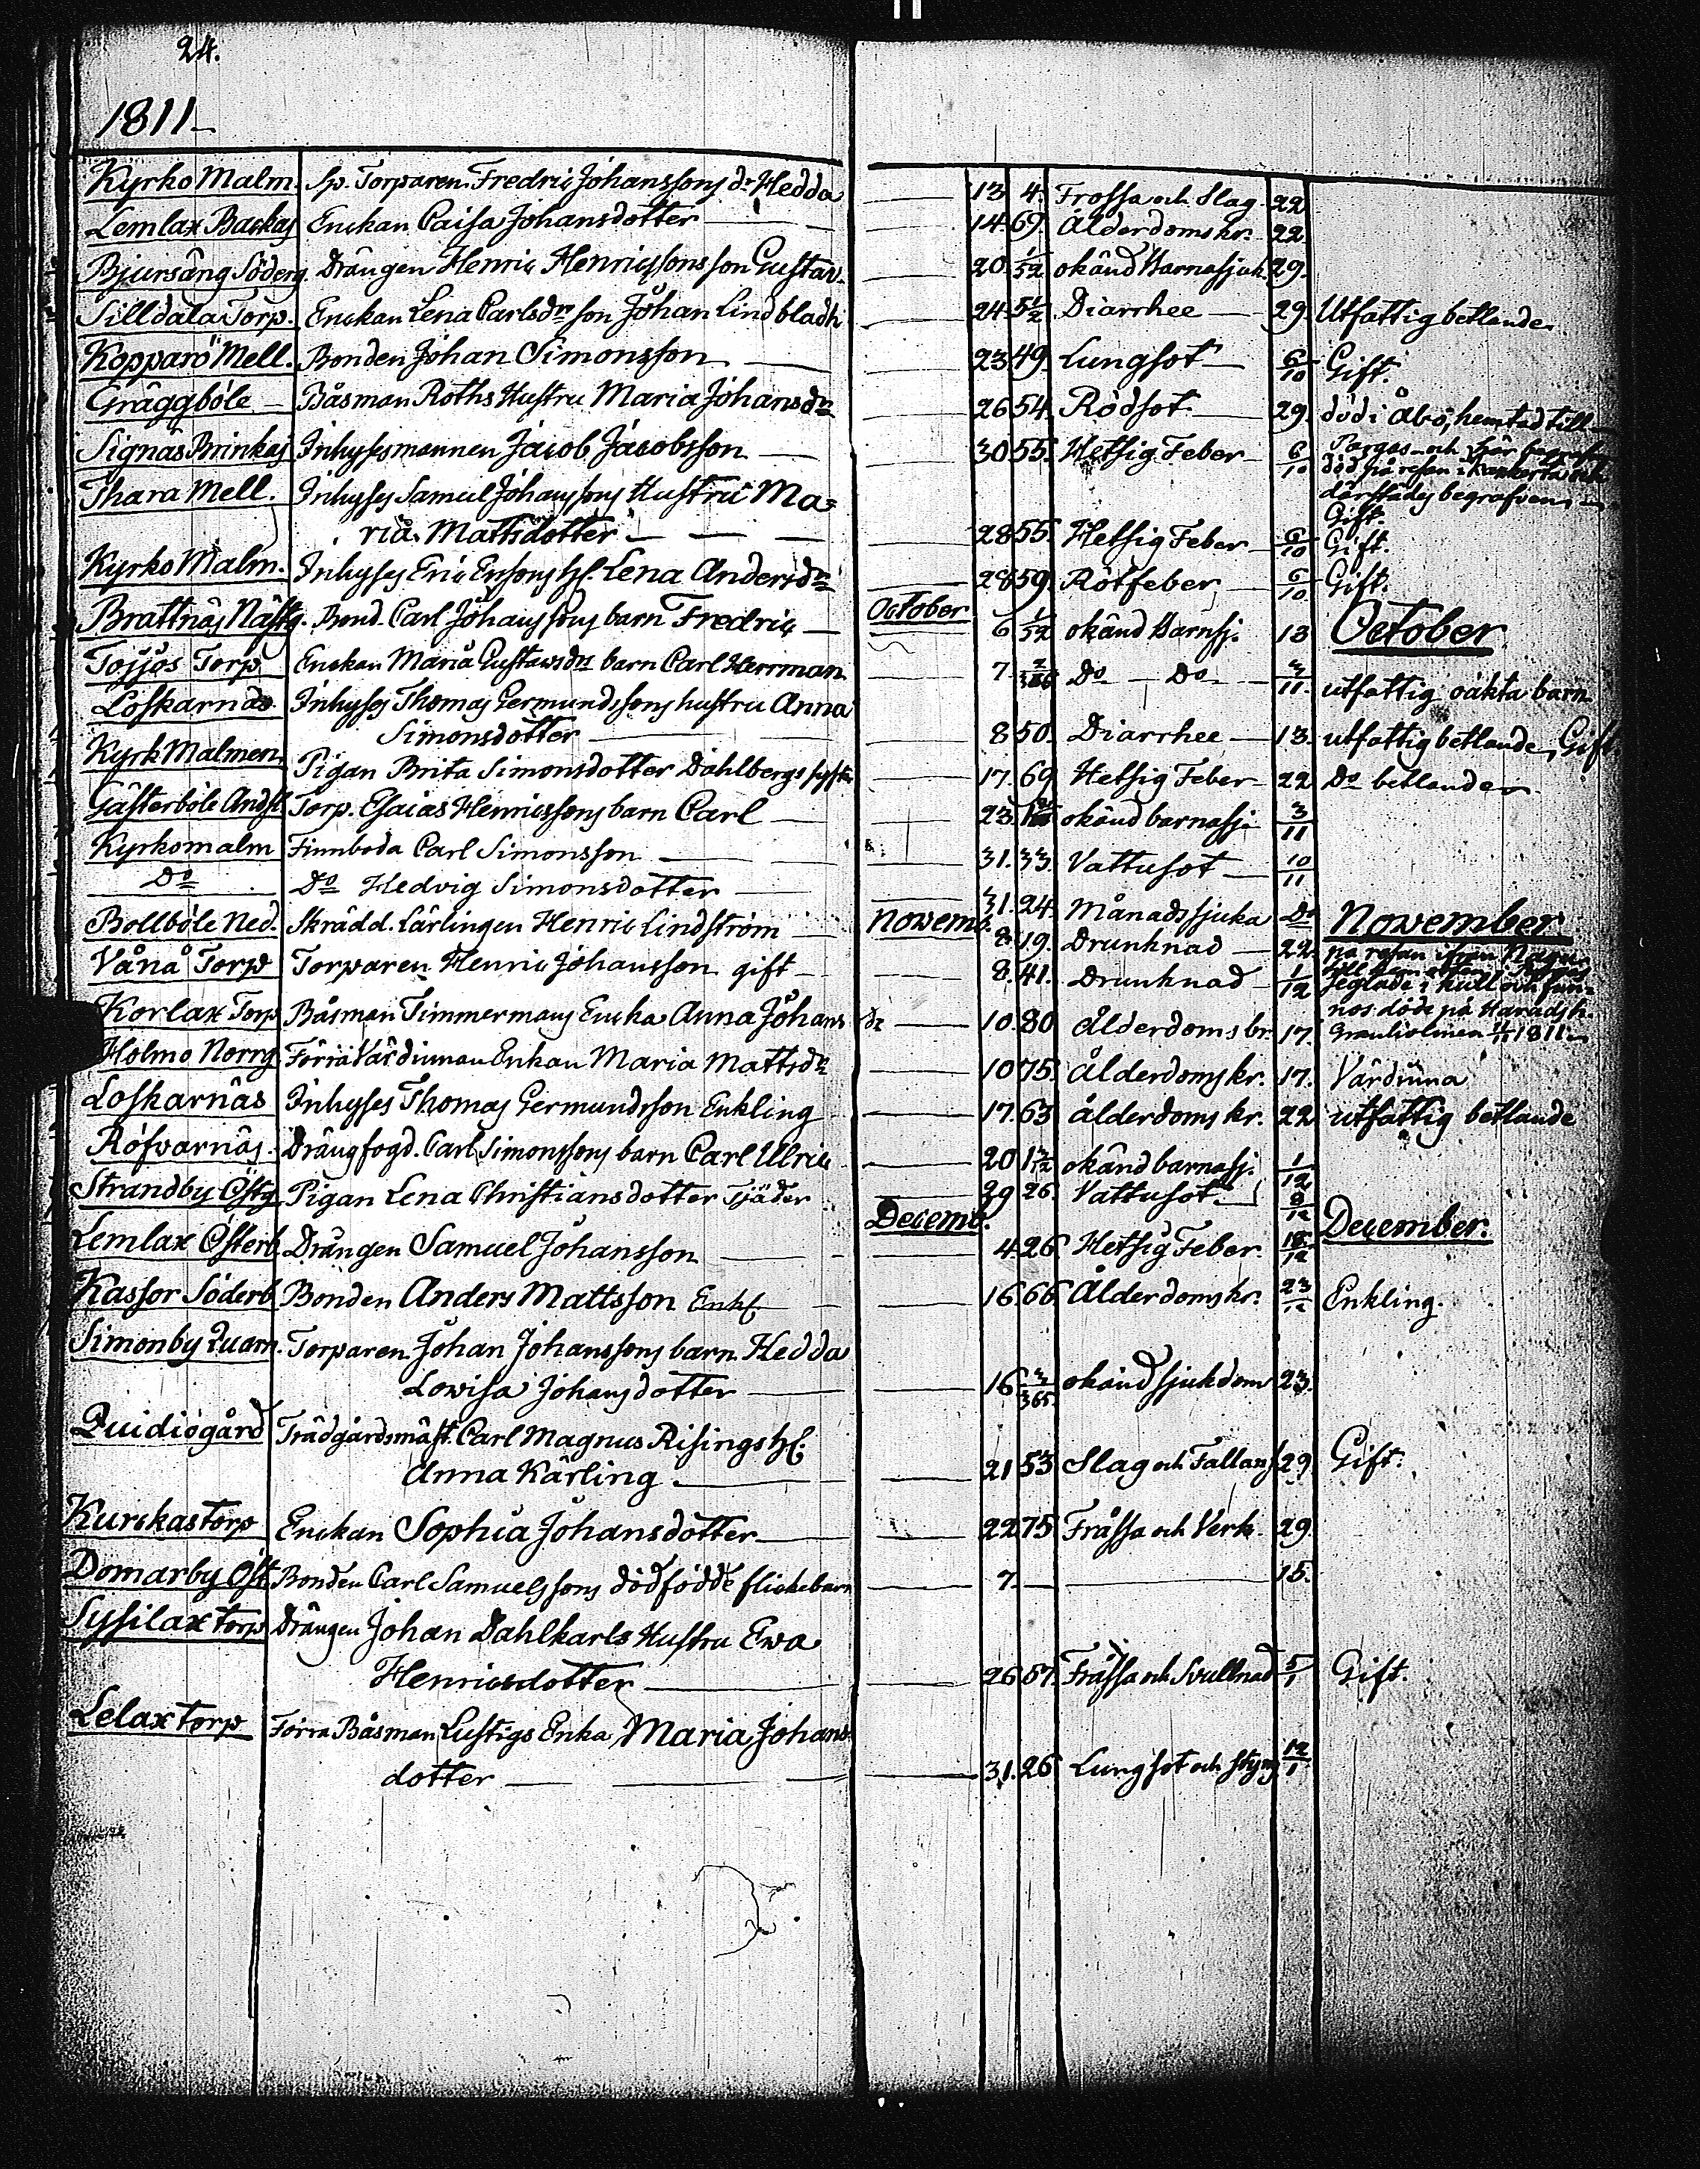 24.
1811
Kyrko Malm. Sp. Torparen Fredric Johanssons dr Hedda 13 4. Frossa och Slag 22
Lemlax Backas Enckan Caisa Johansdotter 14 69. Ålderdoms kr. 22.
Bjursäng Söderg. Drängen Henric Henricssons son Gustav. 20. 1/52 okänd Barnasjuk. 29.
Silldala Torp. Enckan Lena Carlsdr son Johan Lindbladh 24. 5 1/2 Diarrhee 29. Utfattig betlande
Kopparö Mell. Bonden Johan Simonsson 23 49. Lungsot 6/10 Gift.
Gräggböle Båsman Roths Hustru Maria Johansdr 26 54. Rödsot 29. död i Åbo, hemtad till
Signäs Brinkas Inhysesmannen Jacob Jacobsson 30 55. Hetsig Feber 6/10 Pargas och här
död på resan i och
Thara Mell. Inhyses Samuel Johanssons Hustru Ma= därstädes begrafven
Gift.
ria Mattsdotter 28 55. Hetsig Feber 6/10 Gift.
Kyrko Malm. Inhyses Eric Ersons H. Lena Andersdr 28 59. Rötfeber 6/10 Gift.
Brattnäs Nästg. Bond. Carl Johanssons barn Fredric October 6 1/52 okänd Barnsj. 13 October
Tojjos Torp Enckan Maria Gustavsdr barn Carl Herrman 7 Do Do 3/11. utfattig oäkta barn
Loskarnäs Inhyses Thomas Germundssons hustru Anna
Simonsdotter 8 50. Diarrhee 13. utfattig betlande, Gift
Kyrk Malmen Pigan Brita Simonsdotter Dahlbergs syster 17. 69 Hetsig Feber 22 Do betlande
Gästerböle Andst. Torp. Esaias Henricssons barn Carl 23. okänd barnasj. 3/11
Kyrkomalm Finnboda Carl Simonsson 31. 33. Vattusot 10/11
Do Do Hedvig Simonsdotter 31. 24. Månadssjuka Do
Bollböle Ned. Skrädd. Lärlingen Henric Lindström Novemb. 8. 19. Drunknad 22 November
Vånå Torp Torparen Henric Johansson gift 8. 41. Drunknad 1/12 på resan ifrån Nagu
seglade i kull och fun=
nos döde på Haradsh.
Korlax Torp Båsman Timmermans Encka Anna Johans dr 10. 80 Ålderdoms br. 17. Granholmen 1811
Holmo Norrg Förra Värdinnan Enkan Maria Mattsdr 10 75. Ålderdoms kr. 17. Värdinna
Loskarnäs Inhyses Thomas Germundsson Enkling 17. 63 ålderdoms kr. 22 utfattig betlande
Röfvarnäs. Drängfogd. Carl Simonssons barn Carl Ulric 20 okänd barnasj. 1/12
Strandby Östg. Pigan Lena Christiansdotter Tjäder 29 26. Vattusot. 8/12
Lemlax Österb. Drängen Samuel Johansson Decemb. 4. 26. Hetsig Feber. 15/12 December.
Kassor Söderb. Bonden Anders Mattsson Enkl. 16. 66. Ålderdoms kr. 23/12 Enkling.
Simonby Quarn. Torparen Johan Johanssons barn Hedda
Lowisa Johansdotter 16 3/365. okänd sjukdom 23.
Quidiögård Trädgårdsmäst. Carl Magnus Risings H.
Anna Kårling 21 53 Slag och Fallands. 29 Gift.
Kurckas torp Enckan Sophia Johansdotter 22 75 Fråssa och Verk 29.
Domarby Öst. Bonden Carl Samuelssons dödfödde flickebarn 7. 15.
Sysilax torp Drängen Johan Dahlkarls Hustru Ewa
Henricsdotter 26 57. Fråssa och Svullnad 5/1 Gift.
Lelax torp Förra Båsman Lustigs Enka Maria Johans
dotter 31. 26 Lungsot och styng 12/1